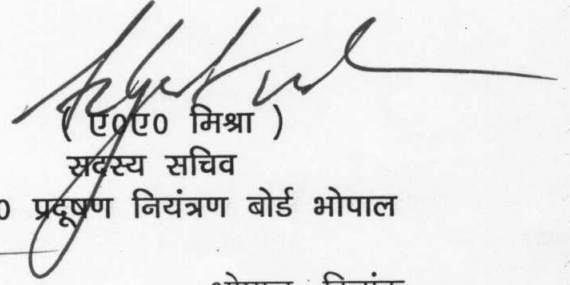 ( ए0ए0 मिश्रा )
सदस्य सचिव
0 प्रदूषण नियंत्रण बोर्ड भोपाल